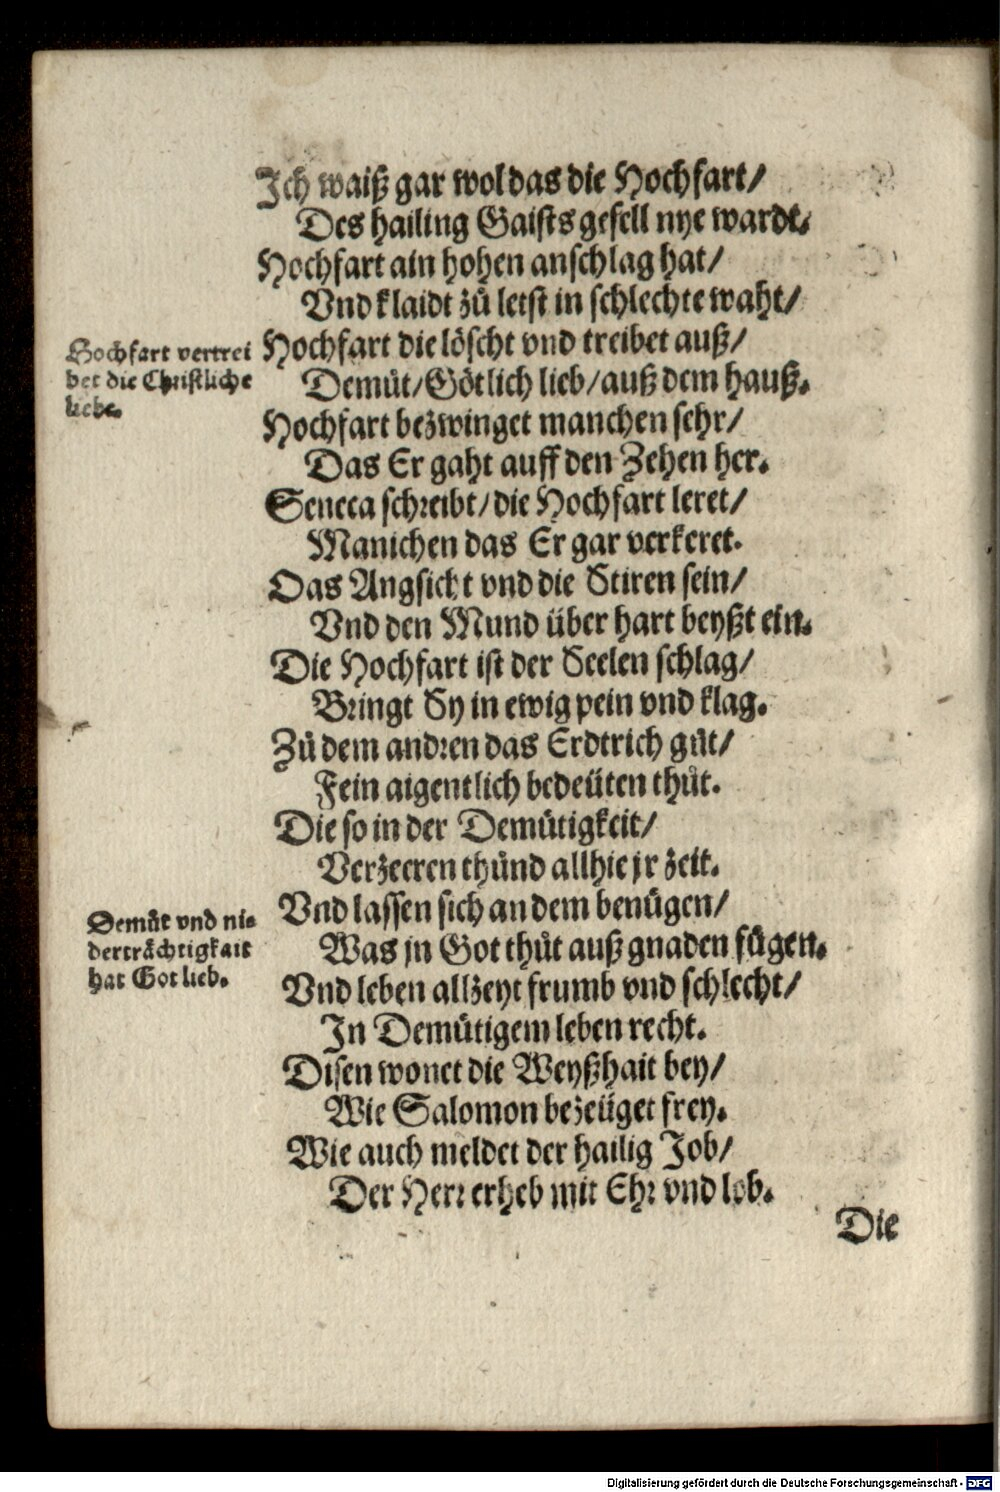 Ich waiß gar wol das die Hochfart/
Des hailing Gaists gesell nye wardt.
Hochfart ain hohen anschlag hat/
Vnd klaidt zů letst in schlechte waht/
Hochfart vertrei
bet die Christliche
liebe.
Hochfart die löscht vnd treibet auß/
Demůt/Götlich lieb/auß dem hauß.
Hochfart bezwinget manchen sehr/
Das Er gaht auff den Zehen her.
Seneca schreibt/die Hochfart leret/
Manichen das Er gar verkeret.
Das Angsicht vnd die Stiren sein/
Vnd den Mund über hart beyßt ein.
Die Hochfart ist der Seelen schlag/
Bringt Sy in ewig pein vnd klag.
Zů dem andren das Erdtrich gůt/
Fein aigentlich bedeüten thůt.
Die so in der Demütigkeit/
Verzeeren thůnd allhie jr zeit.
Demůt vnd ni-
derträchtigkait
hat Got lieb.
Vnd lassen sich an dem benügen/
Was jn Got thůt auß gnaden fügen.
Vnd leben allzeyt frumb vnd schlecht/
In Demütigem leben recht.
Disen wonet die Weyßhait bey/
Wie Salomon bezeüget frey.
Wie auch meldet der hailig Job/
Der Herr erheb mit Ehr vnd lob.
Die
Digitalisierung gefördert durch die Deutsche Forschungsgemeinschaft - DFG